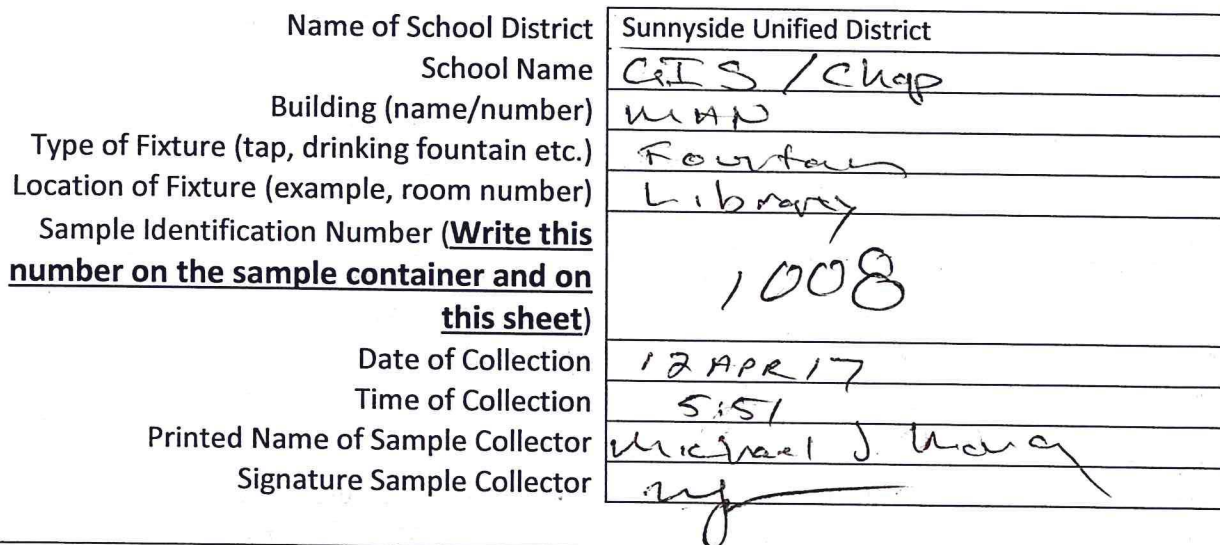 Name of School District Sunnyside Unified District
School Name GIS / Chap
Building (name/number) MAN
Type of Fixture (tap, drinking fountain etc.) Fountain
Location of Fixture (example, room number) Library
Sample Identification Number (Write this
number on the sample container and on
this sheet)
1008
Date of Collection 12 APR 17
Time of Collection 5:51
Printed Name of Sample Collector Michael J.
Signature Sample Collector